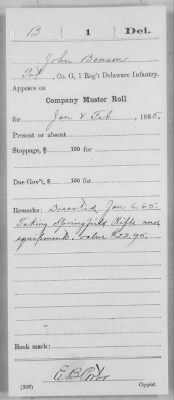 B | 1 | Del.
John Benson
Co. G, 1 Reg't Delaware Infantry.
Appears on
Company Muster Roll
for Jan & Feb, 1865.
Present or absent
Stoppage, $ 100 for
Due Gov't, $ 100 for
Remarks: Deserted Jan 6, 65.
Taking Springfield Rifle and
equipments. Value $22.95.
Book mark:
(358) Copyist.